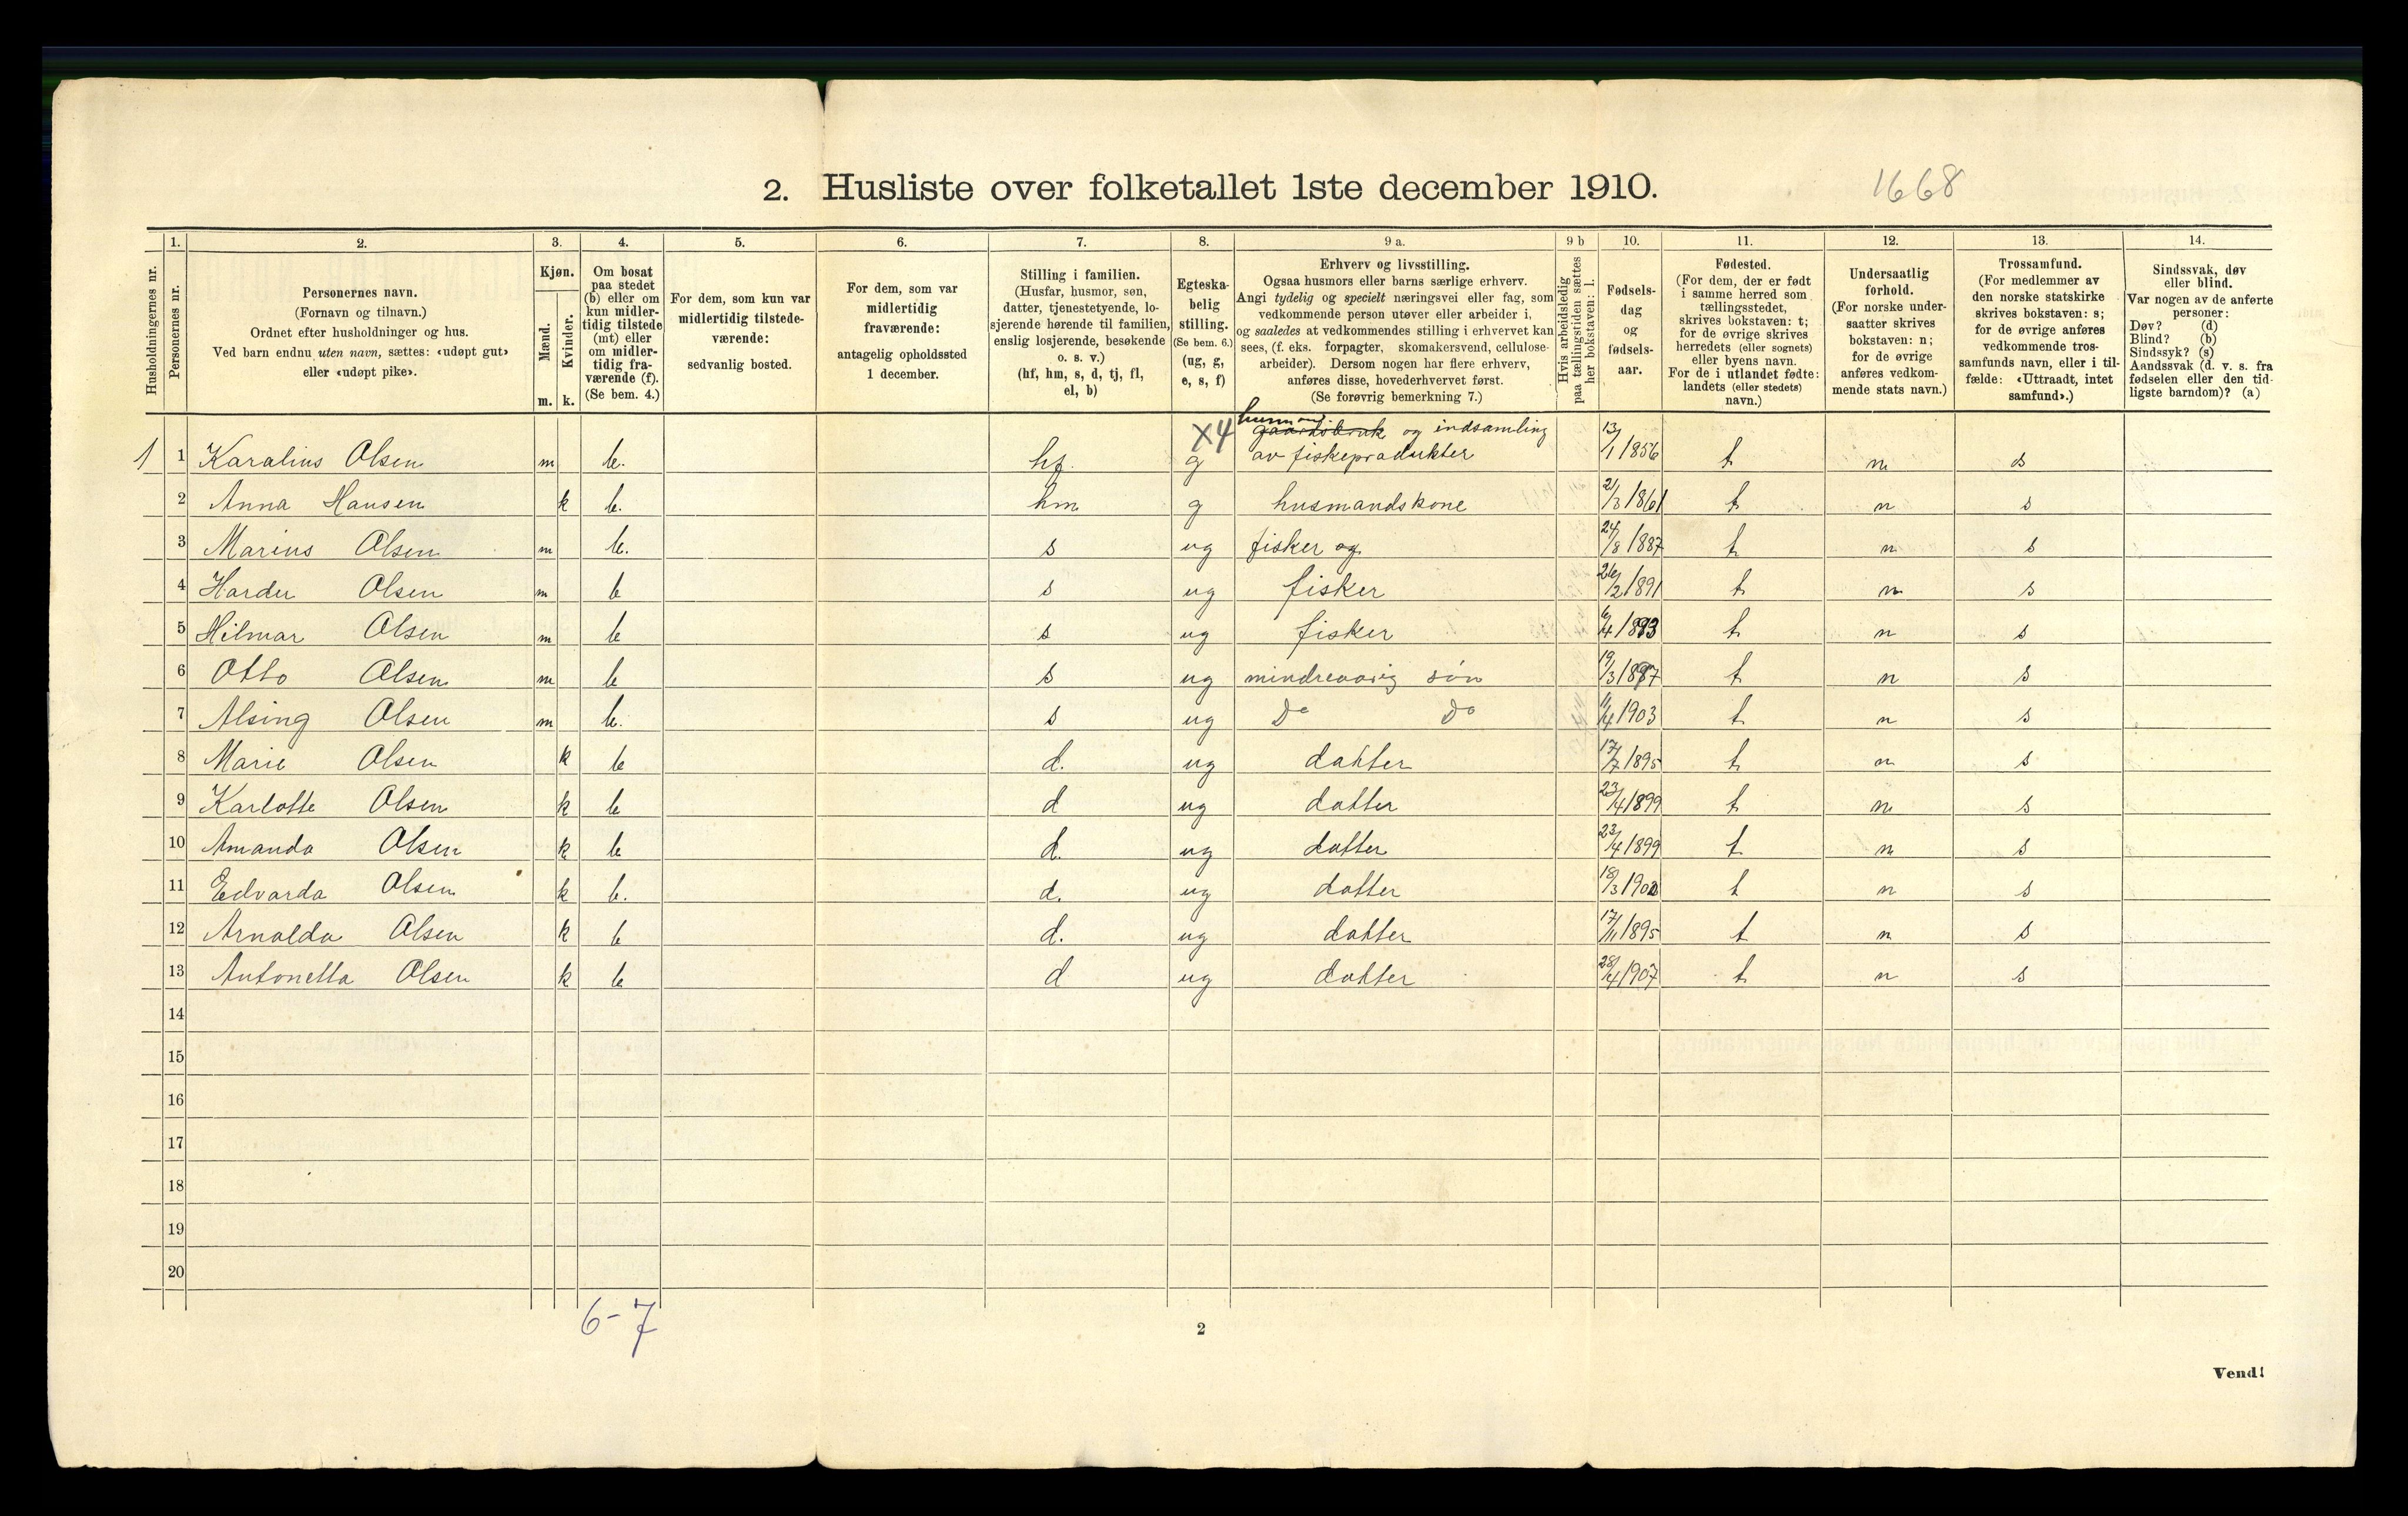 2. Husliste over folketallet 1ste december 1910.
1668
Husholdningernes nr.
1.
Personernes nr.
2.
Personernes navn.
(Fornavn og tilnavn.)
Ordnet efter husholdninger og hus.
Ved barn endnu uten navn, sættes: «udøpt gut»
eller «udøpt pike».
3.
Kjøn.
Mænd.
Kvinder.
m. k.
4.
Om bosat
paa stedet
(b) eller om
kun midler-
tidig tilstede
(mt) eller
om midler-
tidig fra-
værende (f).
(Se bem. 4.)
5.
For dem, som kun var
midlertidig tilstede-
værende:
sedvanlig bosted.
6.
For dem, som var
midlertidig
fraværende:
antagelig opholdssted
1 december.
7.
Stilling i familien.
(Husfar, husmor, søn,
datter, tjenestetyende, lo-
sjerende hørende til familien,
enslig losjerende, besøkende
o. s. v.)
(hf, hm, s, d, tj, fl,
el, b)
8.
Egteska-
belig
stilling.
(Se bem. 6.)
(ug, g,
e, s, f)
9 a.
Erhverv og livsstilling.
Ogsaa husmors eller barns særlige erhverv.
Angi tydelig og specielt næringsvei eller fag, som
vedkommende person utøver eller arbeider i,
og saaledes at vedkommendes stilling i erhvervet kan
sees, (f. eks. forpagter, skomakersvend, cellulose-
arbeider). Dersom nogen har flere erhverv,
anføres disse, hovederhvervet først.
(Se forøvrig bemerkning 7.)
9 b
Hvis arbeidsledig
paa tællingstiden sættes
her bokstaven: l.
10.
Fødsels-
dag
og
fødsels-
aar.
11.
Fødested.
(For dem, der er født
i samme herred som
tællingsstedet,
skrives bokstaven: t;
for de øvrige skrives
herredets (eller sognets)
eller byens navn.
For de i utlandet fødte:
landets (eller stedets)
navn.)
12.
Undersaatlig
forhold.
(For norske under-
saatter skrives
bokstaven: n;
for de øvrige
anføres vedkom-
mende stats navn.)
13.
Trossamfund.
(For medlemmer av
den norske statskirke
skrives bokstaven: s;
for de øvrige anføres
vedkommende tros-
samfunds navn, eller i til-
fælde: «Uttraadt, intet
samfund».)
14.
Sindssvak, døv
eller blind.
Var nogen av de anførte
personer:
Døv? (d)
Blind? (b)
Sindssyk? (s)
Aandssvak (d. v. s. fra
fødselen eller den tid-
ligste barndom)? (a)
X4 gaardsbruk og indsamling
1 1 Karalius Olsen m b. hf. g av fiskeprodukter 13/1 1856 t n s
2 Anna Hansen k b. hm g husmandskone 21/3 1861 t n s
3 Marius Olsen m b. s ug fisker og 24/8 1887 t n s
4 Harder Olsen m b s ug fisker 26/2 1891 t n s
5 Hilmar Olsen m b s ug fisker 6/4 1893 t n s
6 Otto Olsen m b s ug mindreaarig søn 19/3 1897 t n s
7 Alsing Olsen m b. s ug Do do 11/4 1903 t n s
8 Marie Olsen k b d. ug datter 17/7 1895 t n s
9 Karlotte Olsen k b d ug datter 23/4 1899 t n s
10 Amanda Olsen k b d. ug datter 23/4 1899 t n s
11 Edvarda Olsen k b. d. ug datter 18/3 t n s
12 Arnalda Olsen k b d. ug datter 17/11 1895 t n s
13 Antonetta Olsen k b d ug datter 28/4 1907 t n s
14
15
16
17
18
19
20
6-7
2
Vend!